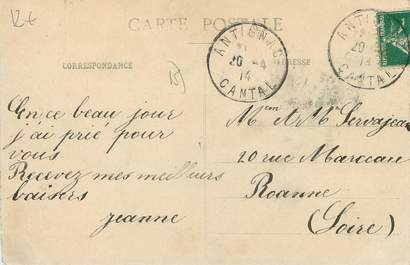 12€
CARTE POSTALE
CORRESPONDANCE
ADRESSE
ANTIGNAC
20-4
14
CANTAL
ANTIGNAC
20-4
14
CANTAL
En ce beau jour
j'ai prié pour
vous
Recevez mes meilleurs
baisers
Jeanne
Servajean
20 rue Marceau
Roanne
(Loire)